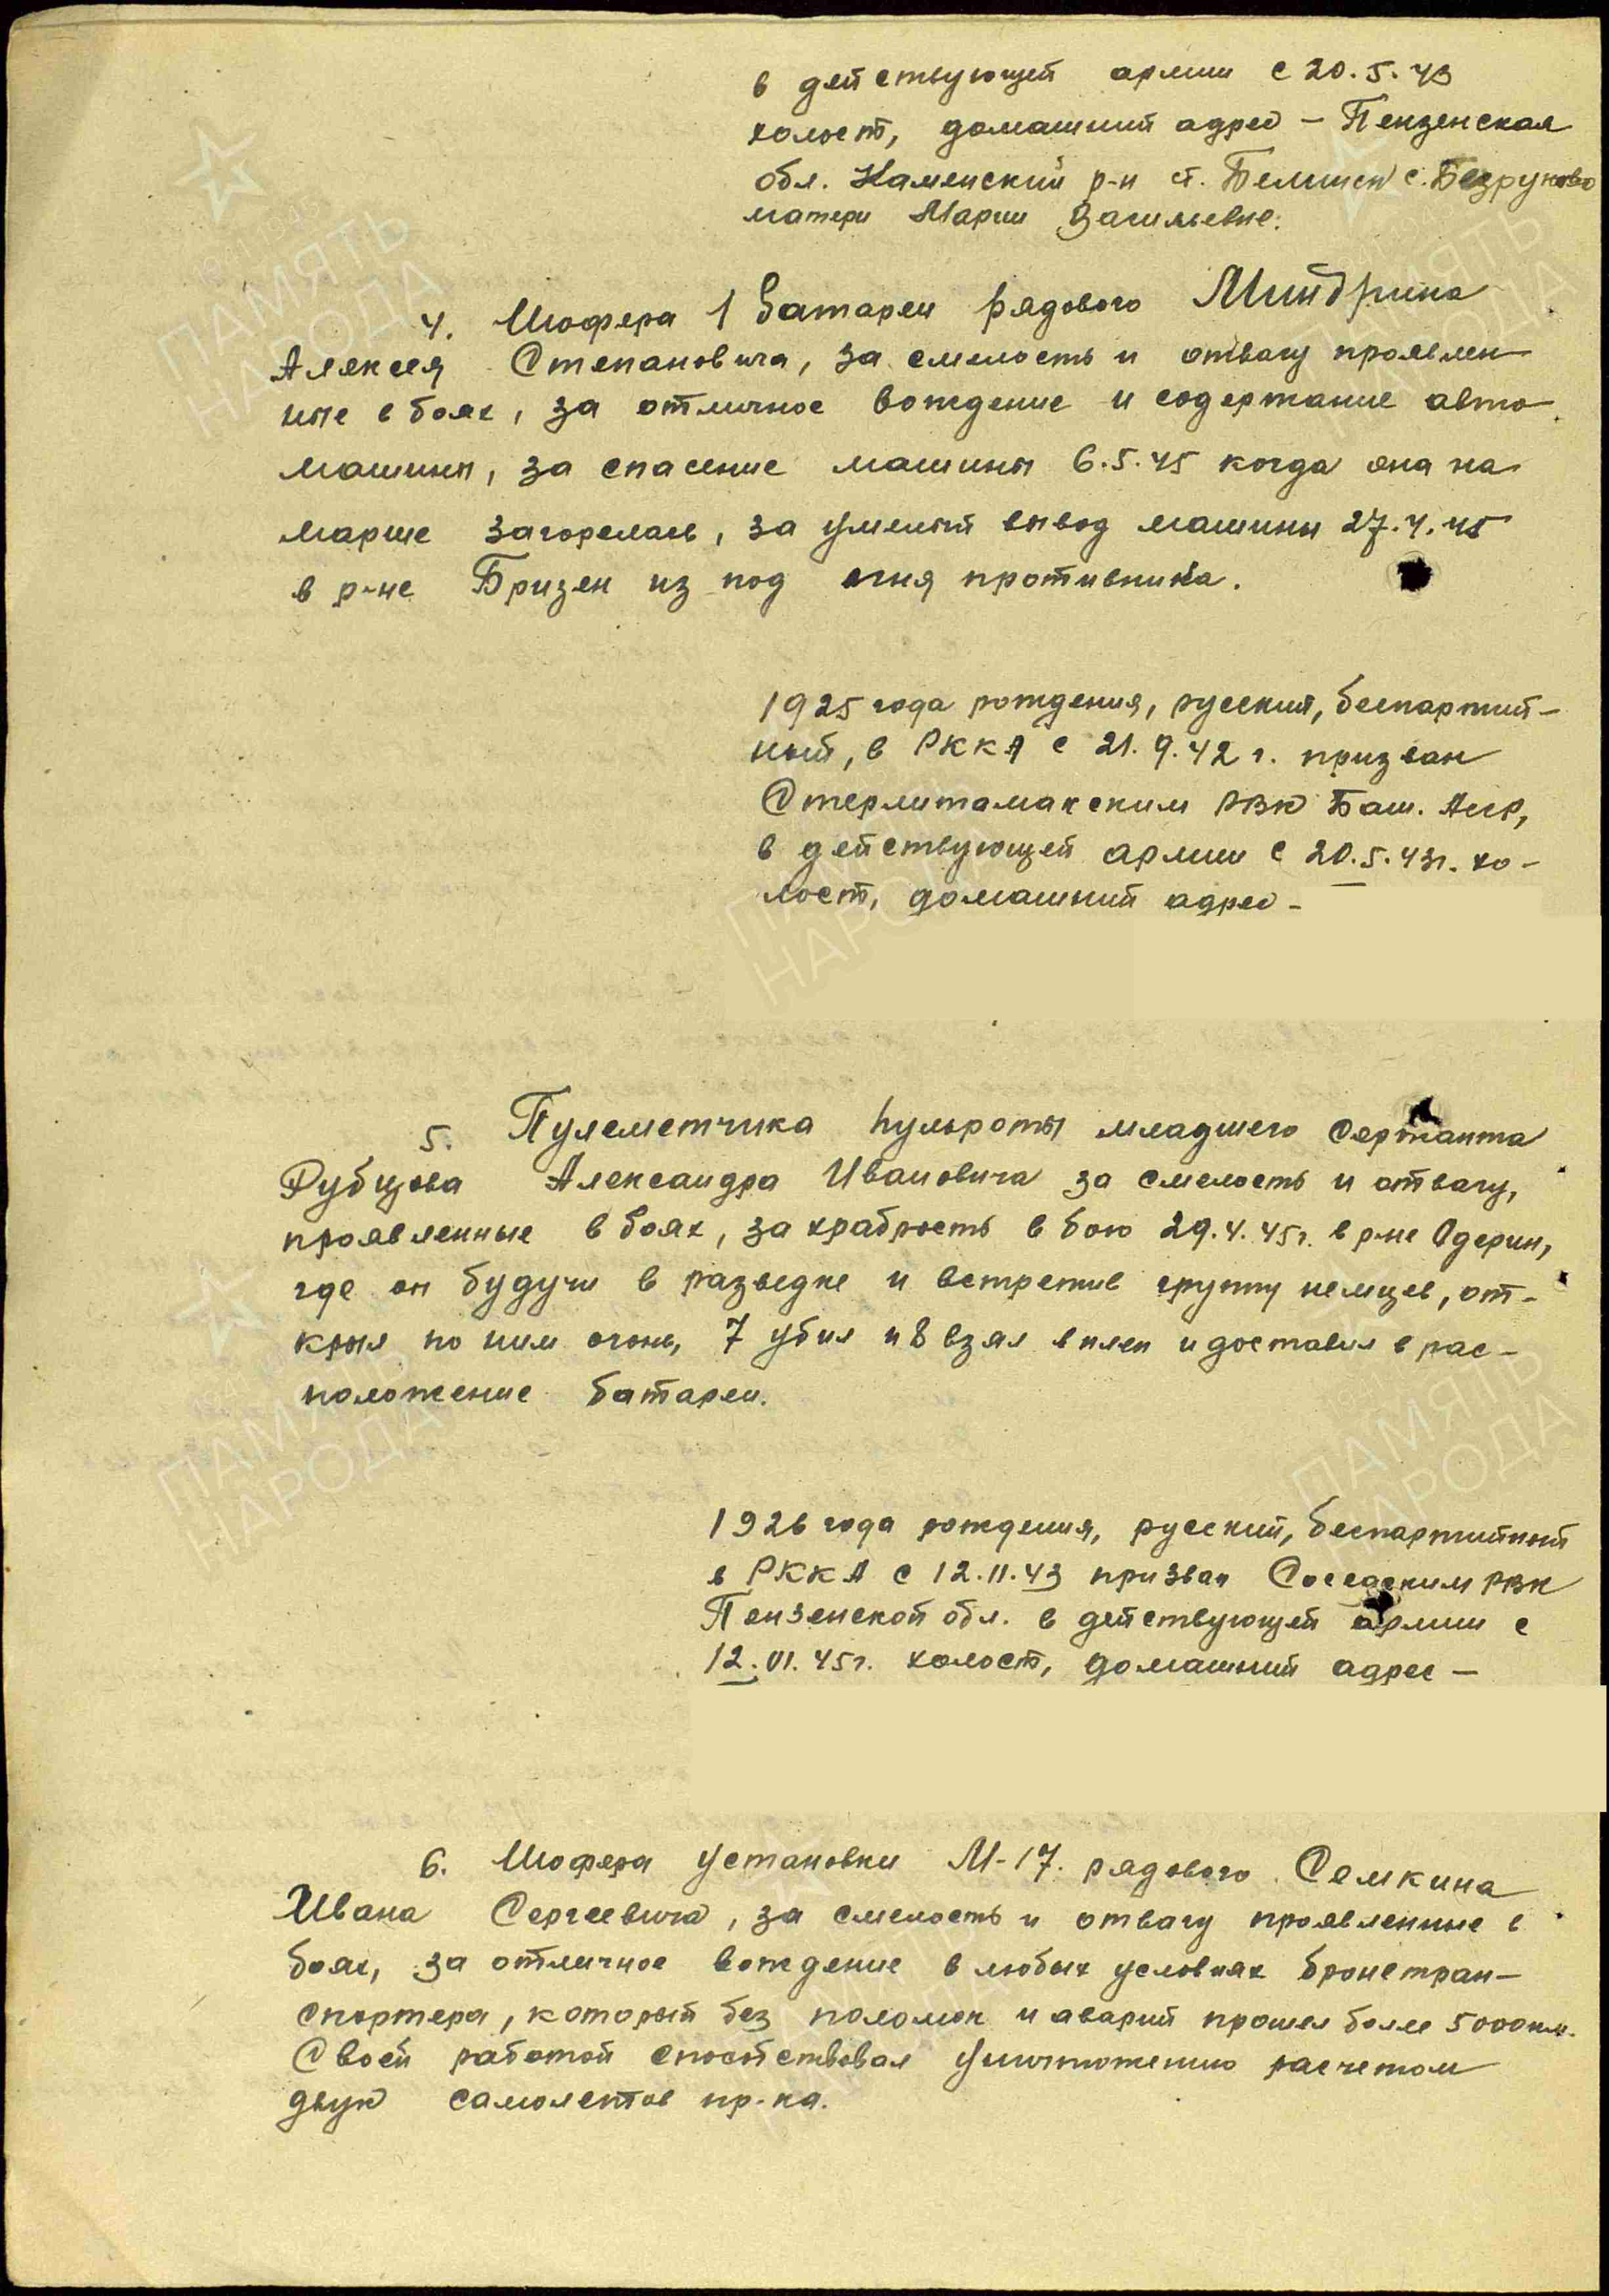 в действующей армии с 20.5.43
холост, домашний адрес – Пензенская
обл. Каменский р-н ст. Белинск с. Безруково
матери Марии Васильевне.
4. Шофера 1 Батареи рядового Миндрина
Алексея Степановича, за смелость и отвагу проявлен-
ные в боях, за отличное вождение и содержание авто-
машины, за спасение машины 6.5.45 когда она на
марше загорелась, за умелый вывод машины 27.4.45
в р-не Бризен из под огня противника.
1925 года рождения, русский, беспартий-
ный, в РККА с 21.9.42 г. призван
Стерлитамакским РВК Баш. АССР,
в действующей армии с 20.5.43г. хо-
лост, домашний адрес –
5. Пулеметчика пульроты младшего сержанта
Рубцова Александра Ивановича за смелость и отвагу,
проявленные в боях, за храбрость в бою 29.4.45г. в р-не Одерин,
где он будучи в разведке и встретив группу немцев, от-
крыл по ним огонь, 7 убил и 8 взял в плен и доставил в рас-
положение батареи.
1926 года рождения, русский, беспартийный
в РККА с 12.11.43 призван Соседским РВК
Пензенской обл. в действующей армии с
12.01.45г. холост, домашний адрес –
6. Шофера установки М-17. рядового Семкина
Ивана Сергеевича, за смелость и отвагу проявленные в
боях, за отличное вождение в любых условиях бронетран-
спортера, который без поломок и аварий прошел более 5000км.
Своей работой способствовал уничтожению расчетом
двух самолетов пр-ка.
ПАМЯТЬ
НАРОДА
ПАМЯТЬ
НАРОДА
ПАМЯТЬ
НАРОДА
ПАМЯТЬ
НАРОДА